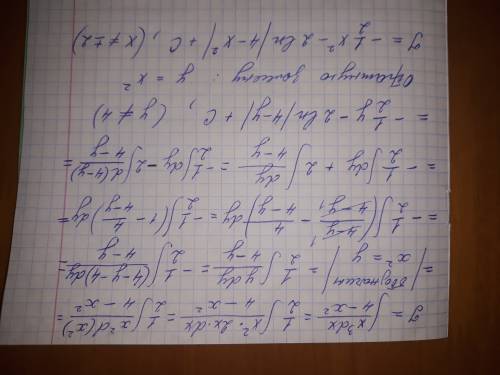 J = ∫ x³dx / (4 - x²) = 1/2 ∫ x²·2x·dx / (4 - x²) = 1/2 ∫ x² d(x²) / (4 - x²) =
= | обозначим x² = y | = 1/2 ∫ y dy / (4 - y) = - 1/2 ∫ (4 - y - 4) dy / (4 - y) =
= - 1/2 ∫ ( (4 - y) / (4 - y) - 4 / (4 - y) ) dy = - 1/2 ∫ (1 - 4 / (4 - y)) dy =
= - 1/2 ∫ dy + 2 ∫ dy / (4 - y) = - 1/2 ∫ dy - 2 ∫ d(4-y) / (4 - y) =
= - 1/2 y - 2 ln |4 - y| + C , (y ≠ 4)
Обратную замену : y = x²
J = - 1/2 x² - 2 ln |4 - x²| + C , (x ≠ ± 2)